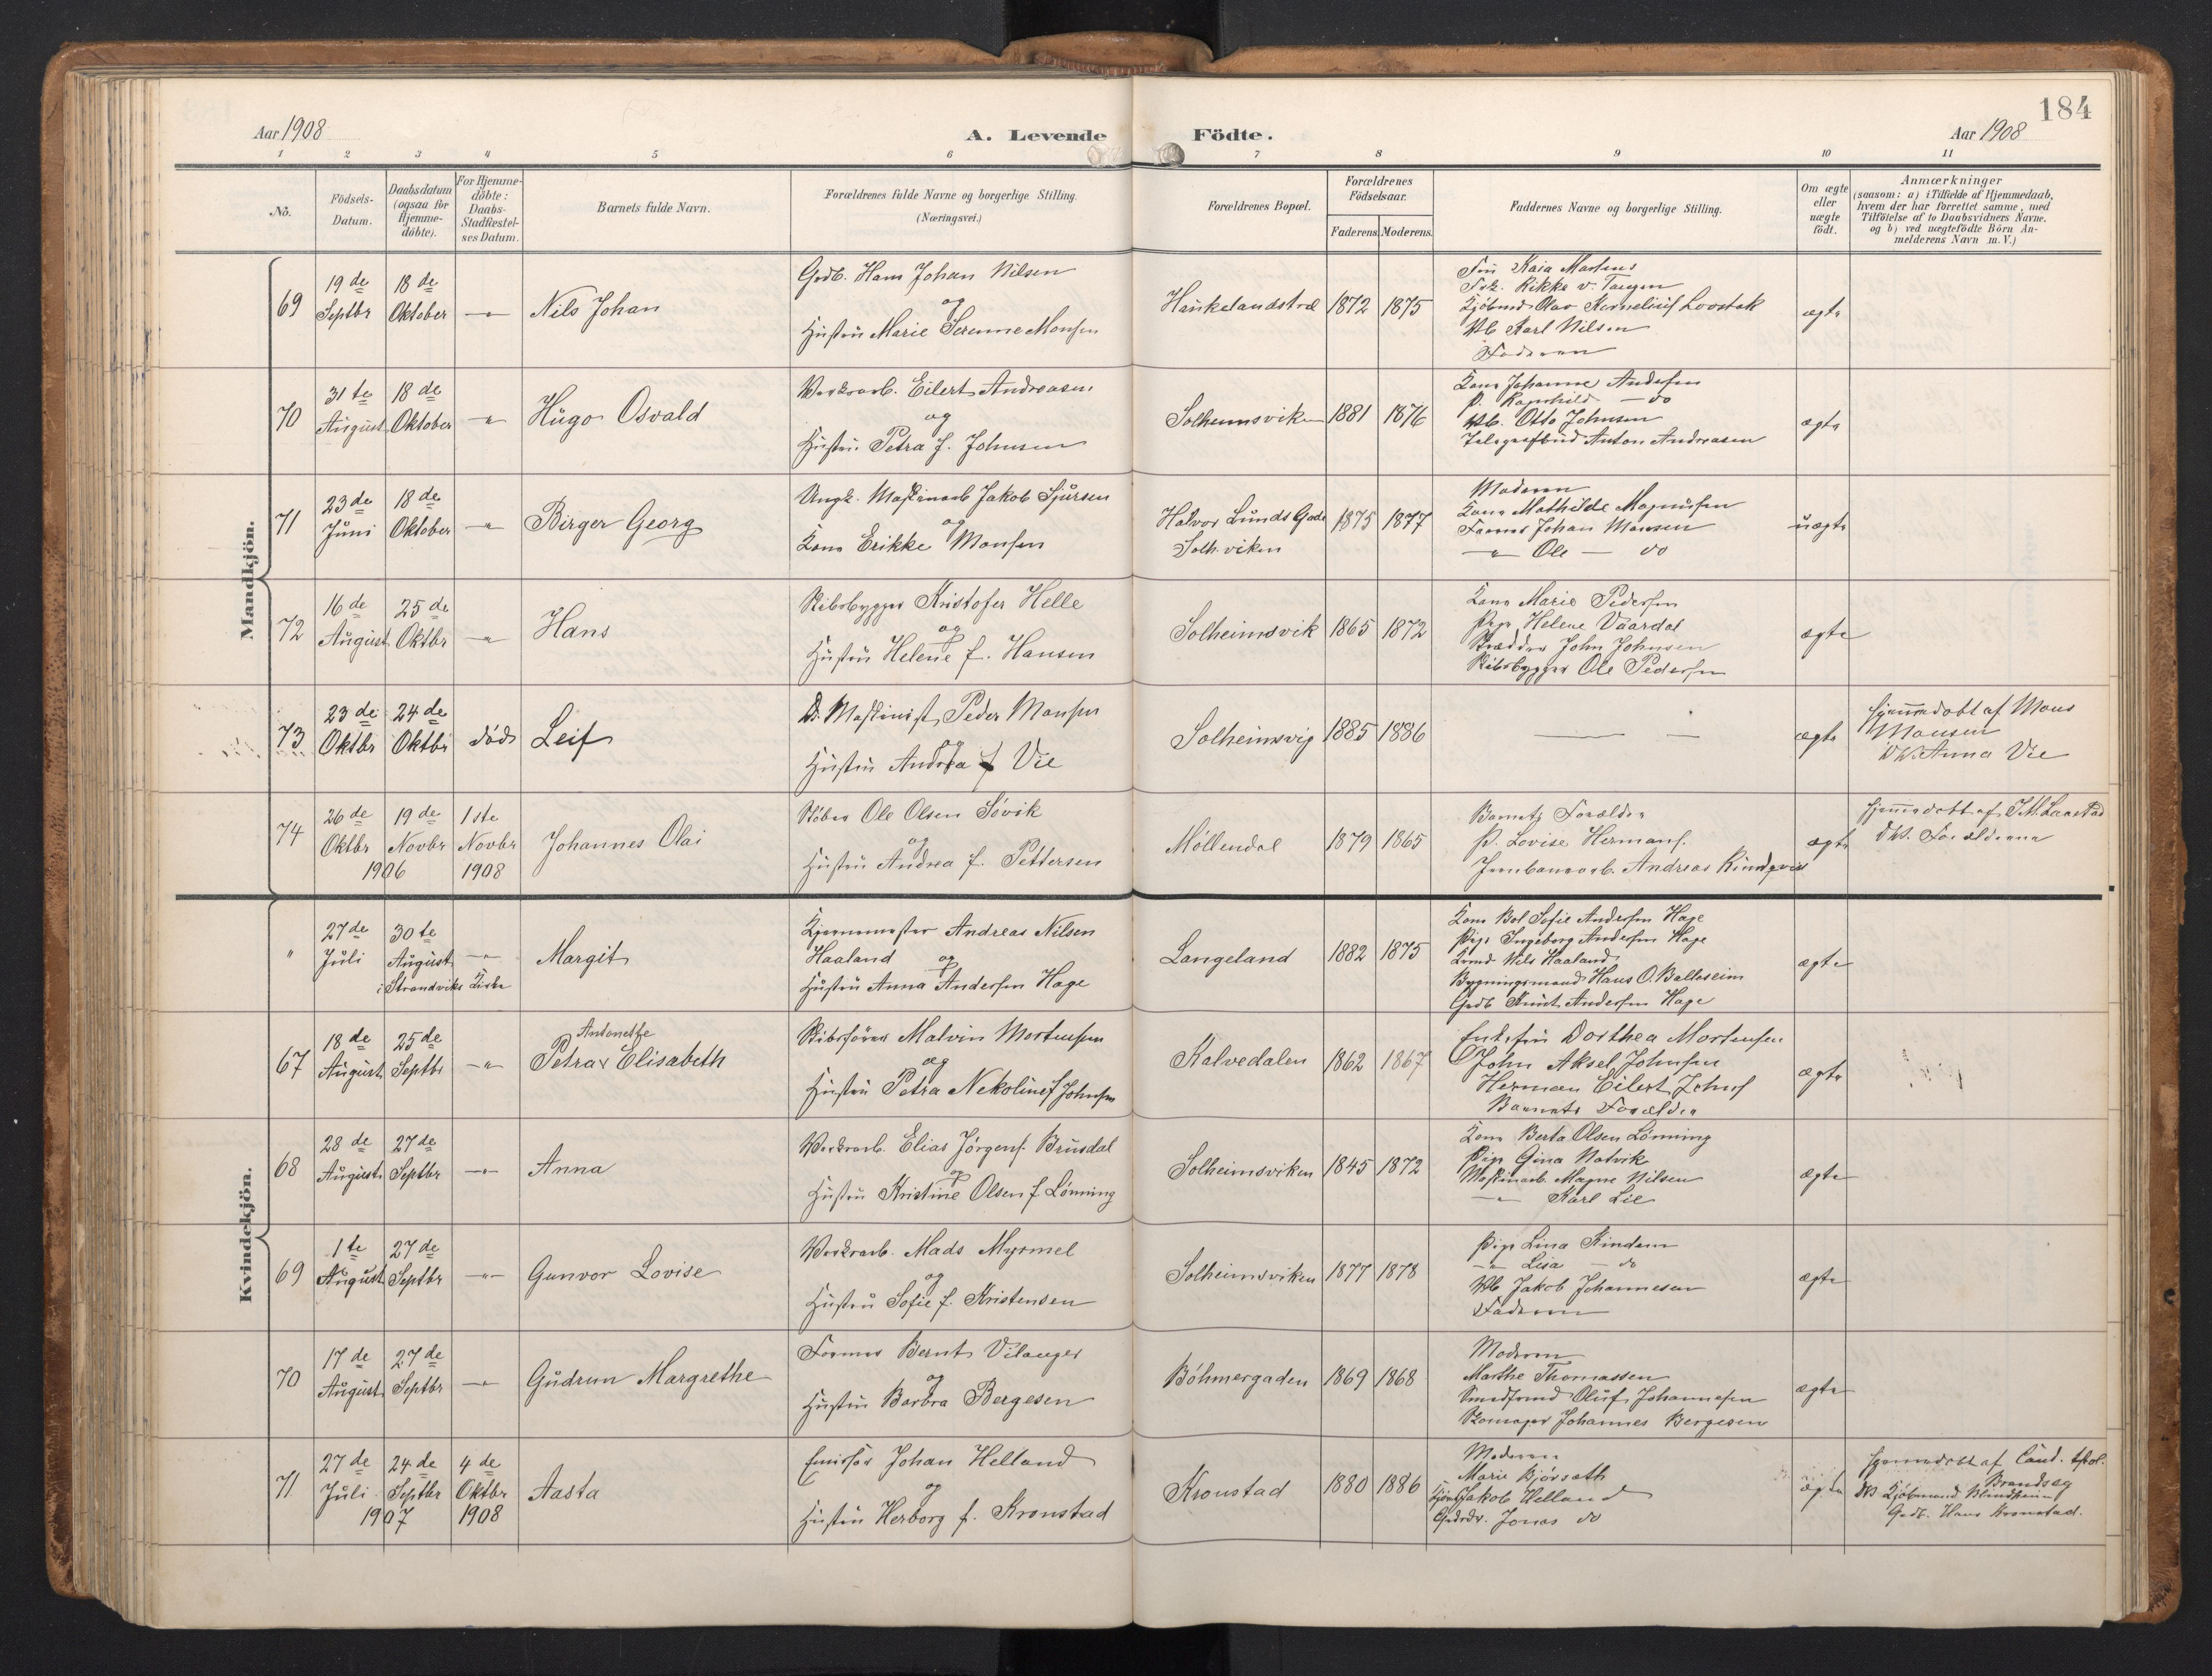 184
Aar 1908
A. Levende Födte.
Aar 1908
1 2 3 4 5 6 7 8 9 10 11
No.
Födsels-Datum.
Daabsdatum (ogsaa for Hjemme-döbte).
For Hjemme-döbte: Daabs-Stadfæstel-ses Datum.
Barnets fulde Navn.
Forældrenes fulde Navne og borgerlige Stilling.
(Næringsvei.)
Forældrenes Bopæl.
Forældrenes Födselsaar.
Faderens. Moderens.
Faddernes Navne og borgerlige Stilling.
Om ægte eller uægte födt.
Anmærkninger
(saasom: a) i Tilfælde af Hjemmedaab,
hvem der har forrettet samme, med
Tilföielse af to Daabsvidners Navne,
og b) ved uægtefödte Börn An-
melderens Navn m.V.)
Mandkjön.
69
19de Septbr
18de Oktober
—"—
Nils Johan
Grdb. Hans Johan Nilsen
og
Hustru Marie Serenne Monsen
Haukelandstræ
1872 1875
Fru Kaia Martens
Frk. Rikke v. Tangen
Kjöbmd Olav Kornelius Lovstak
Karl Nilsen
Faderen
ægte
70
31te August
18de Oktober
—"—
Hugo Osvald
Verksarb. Eilert Andreasen
og
Hustru Petra f. Johnsen
Solheimsviken
1881 1876
Kone Johanne Andersen
P. Ragnhild — do
Otto Johnsen
Telegrafbud Anton Andreasen
ægte
71
23de Juni
18de Oktober
—"—
Birger Georg
Ungk. Maskinarb Jakob Sjursen
og
Kone Erikke Monsen
Halvor Lunds Gade
Solh.viken
1875 1877
Moderen
Kone Mathilde Magnusen
Former Johan Monsen
—"— Ole — do
uægte
72
16de August
25de Oktbr
—"—
Hans
Skibsbygger Kristofer Helle
og
Hustru Helene f. Hansen
Solheimsvik
1865 1872
Kone Marie Pedersen
Pige Helene Vaardal
Skrædder John Johnsen
Skibsbygger Ole Pedersen
ægte
73
23de Oktbr
24de Oktbr
död
Leif
D. Maskinist Peder Monsen
og
Hustru Andrea f Vie
Solheimsvig
1885 1886
— —
ægte
Hjemmedöbt af Mons
Monsen
DV. Anna Vie
74
26de Oktbr
19de Novbr
1906
1ste Novbr
1908
Johannes Olai
Stöber Ole Olsen Sövik
og
Hustru Andrea f. Pettersen
Möllendal
1879 1865
Barnets Forældre
P. Lovise Hermans.
Jernbanearb. Andreas
ægte
Hjemmedöbt af
DV. Forældrene
Kvindekjön.
"
27de Juli
30te August
—"—
i Strandviks Kirke
Margit
Kjernemester Andreas Nilsen
Haaland og
Hustru Anna Andersen Hage
Langeland
1882 1875
Kone Bol Sofie Andersen Hage
Pige Ingeborg Andersen Hage
Nils Haaland
Bygningsmand Hans O. Balleseim
Grdb Knut Andersen Hage
ægte
67
18de August
25de Septbr
—"—
Antonette
Petra Elisabeth
Skibsförer Malvin Mortensen
og
Hustru Petra Nekoline f Johnsen
Kalvedalen
1862 1867
Enkefru Dorthea Mortensen
John Aksel Johnsen
Herman Eilert Johns
Barnets Forældre
ægte
68
28de August
27de Septbr
—"—
Anna
Verksarb. Elias Jörgens. Brusdal
og
Hustru Kristine Olsen f. Lönning
Solheimsviken
1845 1872
Kone Berta Olsen Lönning
Pige Gina Natvik
Maskinarb. Magne Nilsen
—"— Karl Lie
ægte
69
1te August
27de Septbr
—"—
Gunvor Lovise
Verksarb. Mads Myrmel
og
Hustru Sofie f. Kristensen
Solheimsviken
1877 1878
Pige Lina Kindem
—"— Lisa — do
Jakob Johannesen
Faderen
ægte
70
17de August
27de Septbr
—"—
Gudrun Margrethe
Former Bernt Vilanger
og
Hustru Barbra Bergesen
Böhmergaden
1869 1868
Moderen
Marthe Thomassen
Smedsvend Oluf Johannesen
Skomager Johannes Bergesen
ægte
71
27de Juli
24de Septbr
1907
4de Oktbr
1908
Aasta
Emissær Johan Helland
og
Hustru Herborg f. Kronstad
Kronstad
1880 1886
Moderen
Marie Björsath
Jakob Helland
Jonas do
ægte
Hjemmedöbt af Cand. theol.
Brandseg
DV Kjöbmand Blindheim
Grdb. Hans Kronstad.